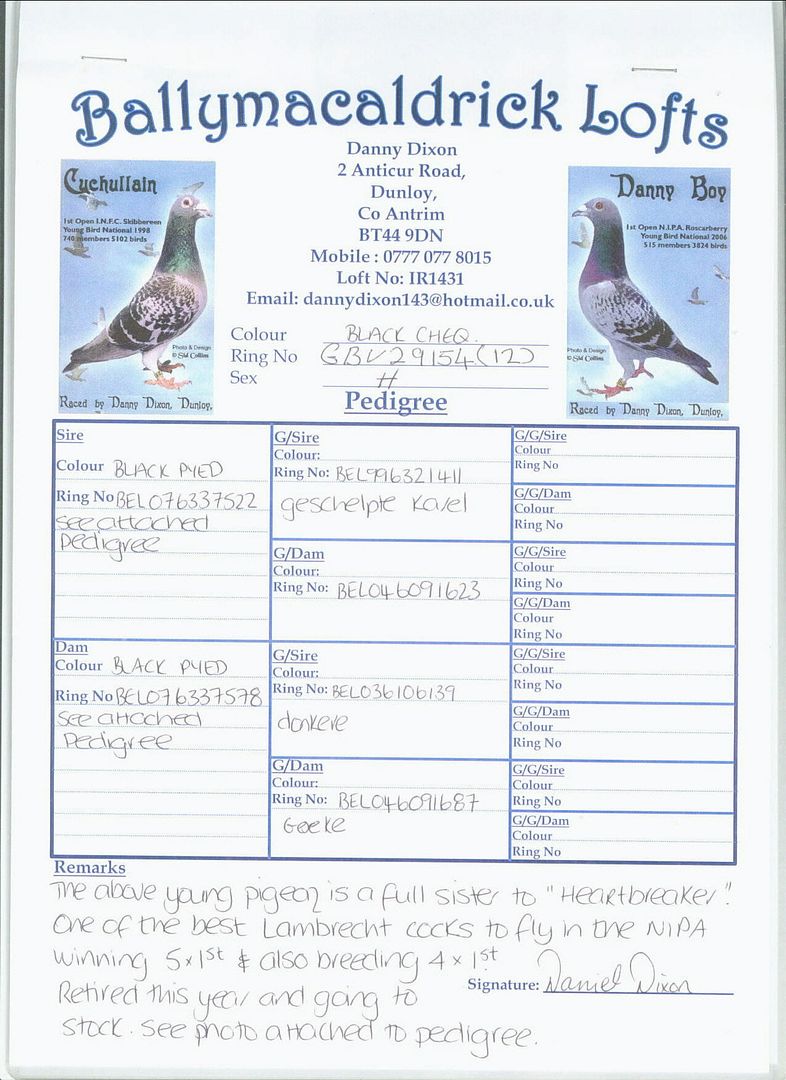 Ballymacaldrick Lofts
Danny Dixon
2 Anticur Road,
Dunloy,
Co Antrim
BT44 9DN
Mobile : 0777 077 8015
Loft No: IR1431
Email: dannydixon143@hotmail.co.uk
Cuchullain
1st Open I.N.F.C. Skibbereen
Young Bird National 1998
740 members 5102 birds
Photo & Design
© Sid Collins
Raced by Danny Dixon, Dunloy,
Danny Boy
1st Open N.I.P.A. Roscarberry
Young Bird National 2006
515 members 3824 birds
Photo & Design
© Sid Collins
Raced by Danny Dixon, Dunloy,
Colour BLACK CHEQ.
Ring No GBV29154(12)
Sex H
Pedigree
Sire
Colour BLACK PYED
Ring No BEL076337522
See attached
Pedigree
G/Sire
Colour:
Ring No: BEL996321411
geschelpte Karel
G/Dam
Colour:
Ring No: BEL046091623
G/G/Sire
Colour
Ring No
G/G/Dam
Colour
Ring No
G/G/Sire
Colour
Ring No
G/G/Dam
Colour
Ring No
Dam
Colour BLACK PYED
Ring No BEL076337578
See attached
Pedigree
G/Sire
Colour:
Ring No: BEL036106139
donkere
G/Dam
Colour:
Ring No: BEL046091687
Geeke
G/G/Sire
Colour
Ring No
G/G/Dam
Colour
Ring No
G/G/Sire
Colour
Ring No
G/G/Dam
Colour
Ring No
Remarks
The above young pigeon is a full sister to "Heartbreaker".
One of the best Lambrecht cocks to fly in the NIPA
winning 5x1st & also breeding 4x1st.
Retired this year and going to
stock. See photo attached to pedigree.
Signature: Daniel Dixon